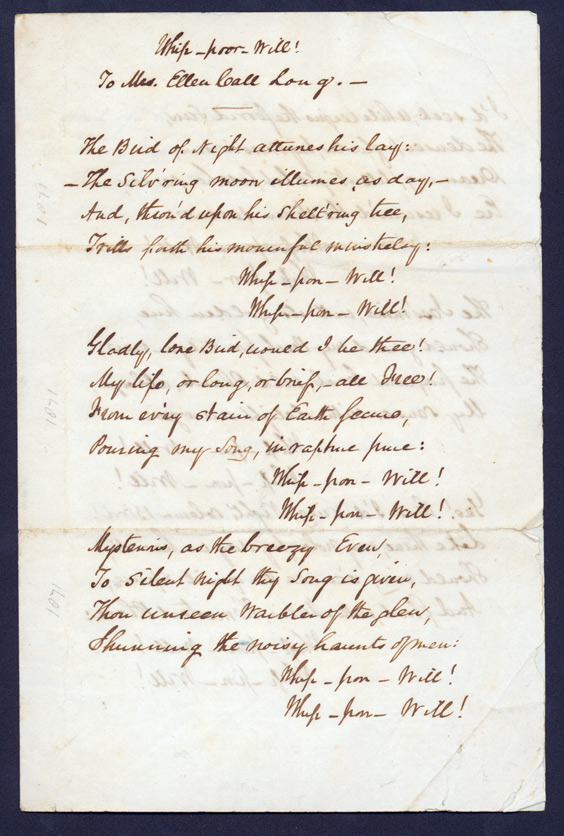 Whip-poor-Will!
To Mrs. Ellen Call Long. -
The Bird of Night attunes his lay:
- The Silv'ring moon illumes as day, -
And, thron'd upon his shelt'ring tree,
Trills forth his mournful minstrelsy:
Whip-poor-Will!
Whip-poor-Will!
Gladly, lone Bird, would I be thee!
My life, or long, or brief, - all Free!
From ev'ry stain of Earth secure,
Pouring my Song, in rapture pure:
Whip-poor-Will!
Whip-poor-Will!
Mysterious, as the breezy Even,
To Silent night thy Song is given,
Thou unseen Warbler of the glen,
Shunning the noisy haunts of men:
Whip-poor-Will!
Whip-poor-Will!
1871
1871
1871